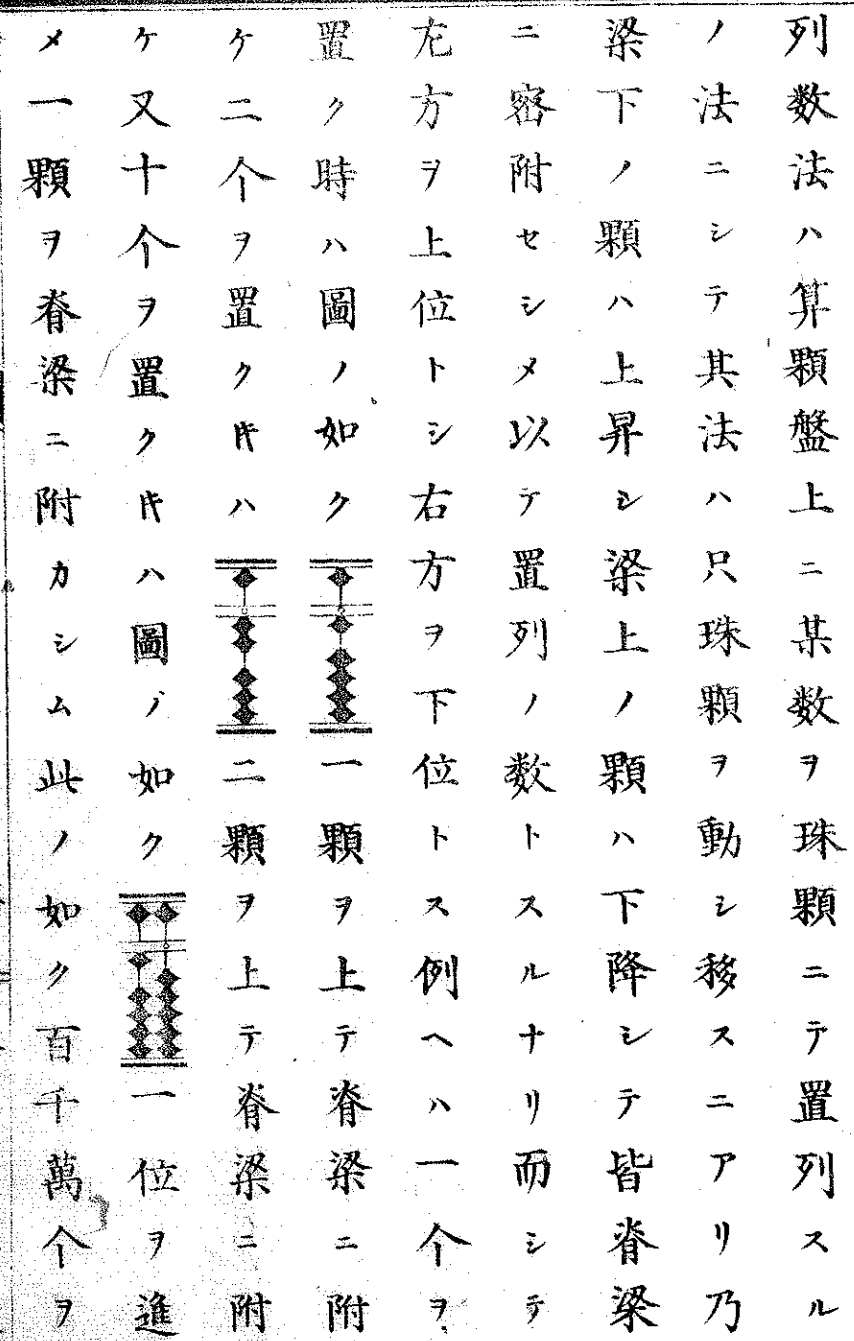 列数法ハ算顆盤上ニ某数ヲ珠顆ニテ置列スル
ノ法ニシテ其法ハ只珠顆ヲ動シ移スニアリ乃
梁下ノ顆ハ上昇シ梁上ノ顆ハ下降シテ皆脊梁
ニ密附セシメ以テ置列ノ数トスルナリ而シテ
左方ヲ上位トシ右方ヲ下位トス例ヘハ一个ヲ
置ク時ハ圖ノ如ク一顆ヲ上テ脊梁ニ附
ケ二个ヲ置ク𪜈ハ二顆ヲ上テ脊梁ニ附
ケ又十个ヲ置ク𪜈ハ圖ノ如ク一位ヲ進
メ一顆ヲ脊梁ニ附カシム此ノ如ク百千萬个ヲ